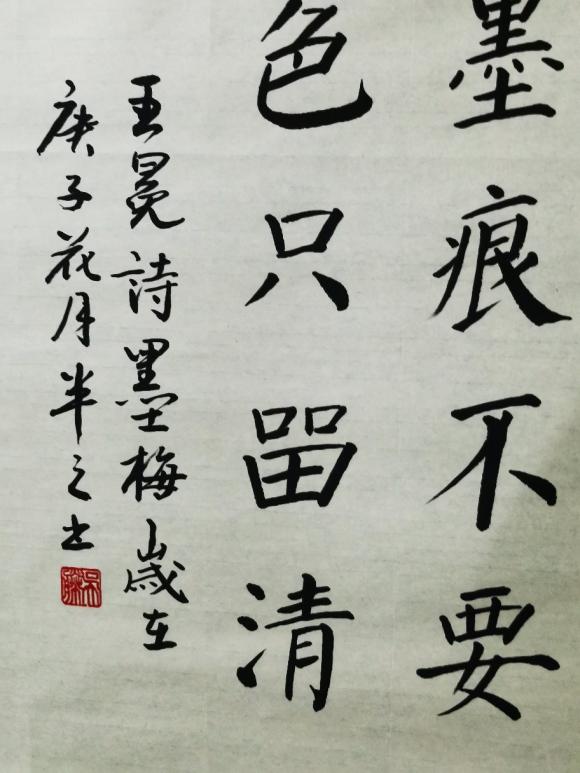 墨痕不要
色只留清
王冕詩墨梅歲在
庚子花月半之书